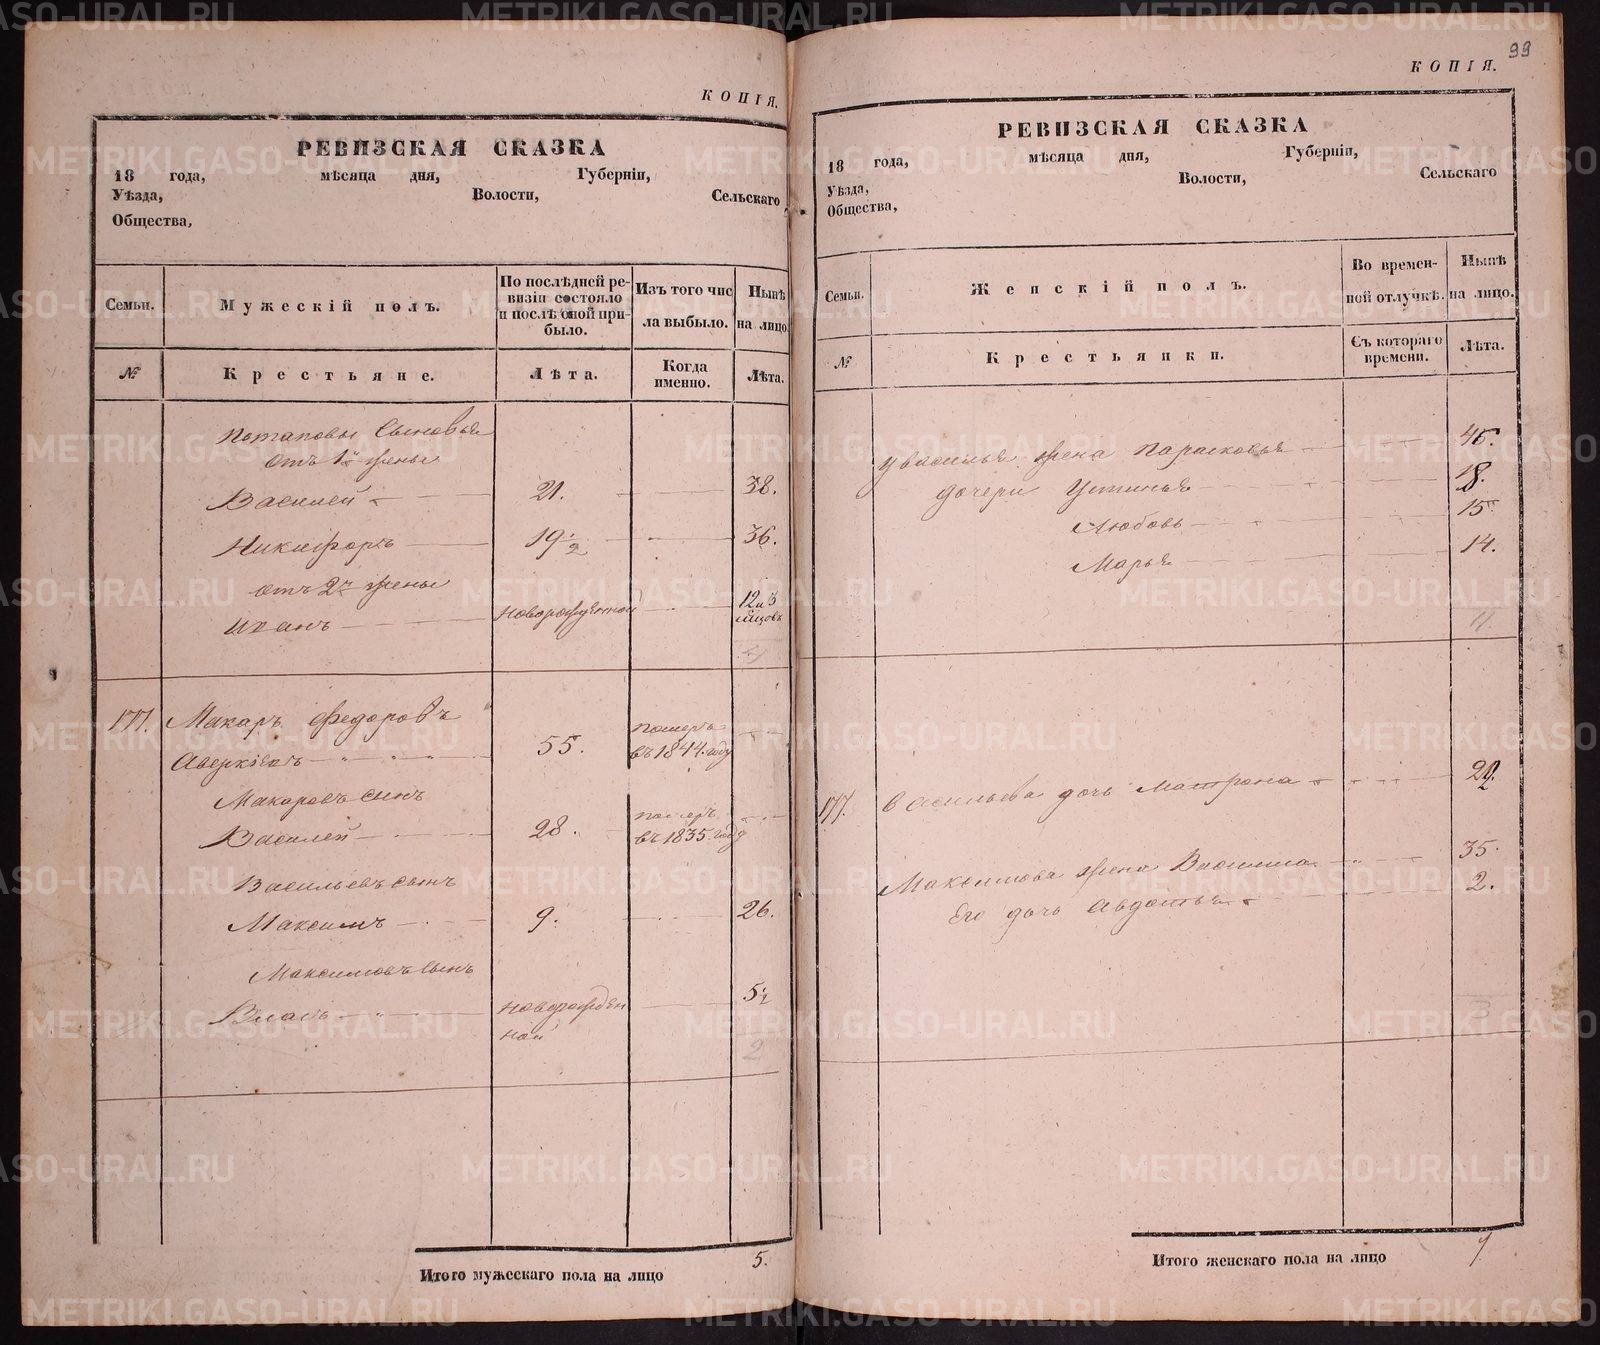 КОПІЯ.
РЕВИЗСКАЯ СКАЗКА
18 года, мѣсяца дня, Губерніи,
Уѣзда, Волости, Сельскаго
Общества,
Семьи. Мужескій полъ. По послѣдней ревизіи состояло и послѣ оной прибыло. Изъ того числа выбыло. Нынѣ на лицо.
№ Крестьяне. Лѣта. Когда именно. Лѣта.
Потаповы Сыновья
отъ 1й жены
Василей 21. 38.
Никифоръ 19 1/2 36.
отъ 2й жены
Иванъ новорожденной 12 и 3 мѣсцовъ
177. Макаръ Федоровъ
Аверкіевъ 55. померъ въ 1844. году
Макаровъ сынъ
Василей 28. померъ въ 1835. году
Васильевъ сынъ
Максимъ 9. 26.
Максимовъ сынъ
Власъ новорожденной 5 1/2
2
Итого мужескаго пола на лицо 5.
99
КОПІЯ.
РЕВИЗСКАЯ СКАЗКА
18 года, мѣсяца дня, Губерніи,
Уѣзда, Волости, Сельскаго
Общества,
Семьи. Женскій полъ. Во временной отлучкѣ. Нынѣ на лицо.
№ Крестьянки. Съ котораго времени. Лѣта.
у Василья жена Парасковья 45.
дочери Устинья 18.
Любовь 15
Марья 14.
4.
177. Васильева дочь Матрона
Максимова жена Василиса 35.
Его дочь Авдотья 2.
3
Итого женскаго пола на лицо 7
METRIKI.GASO-URAL.RU